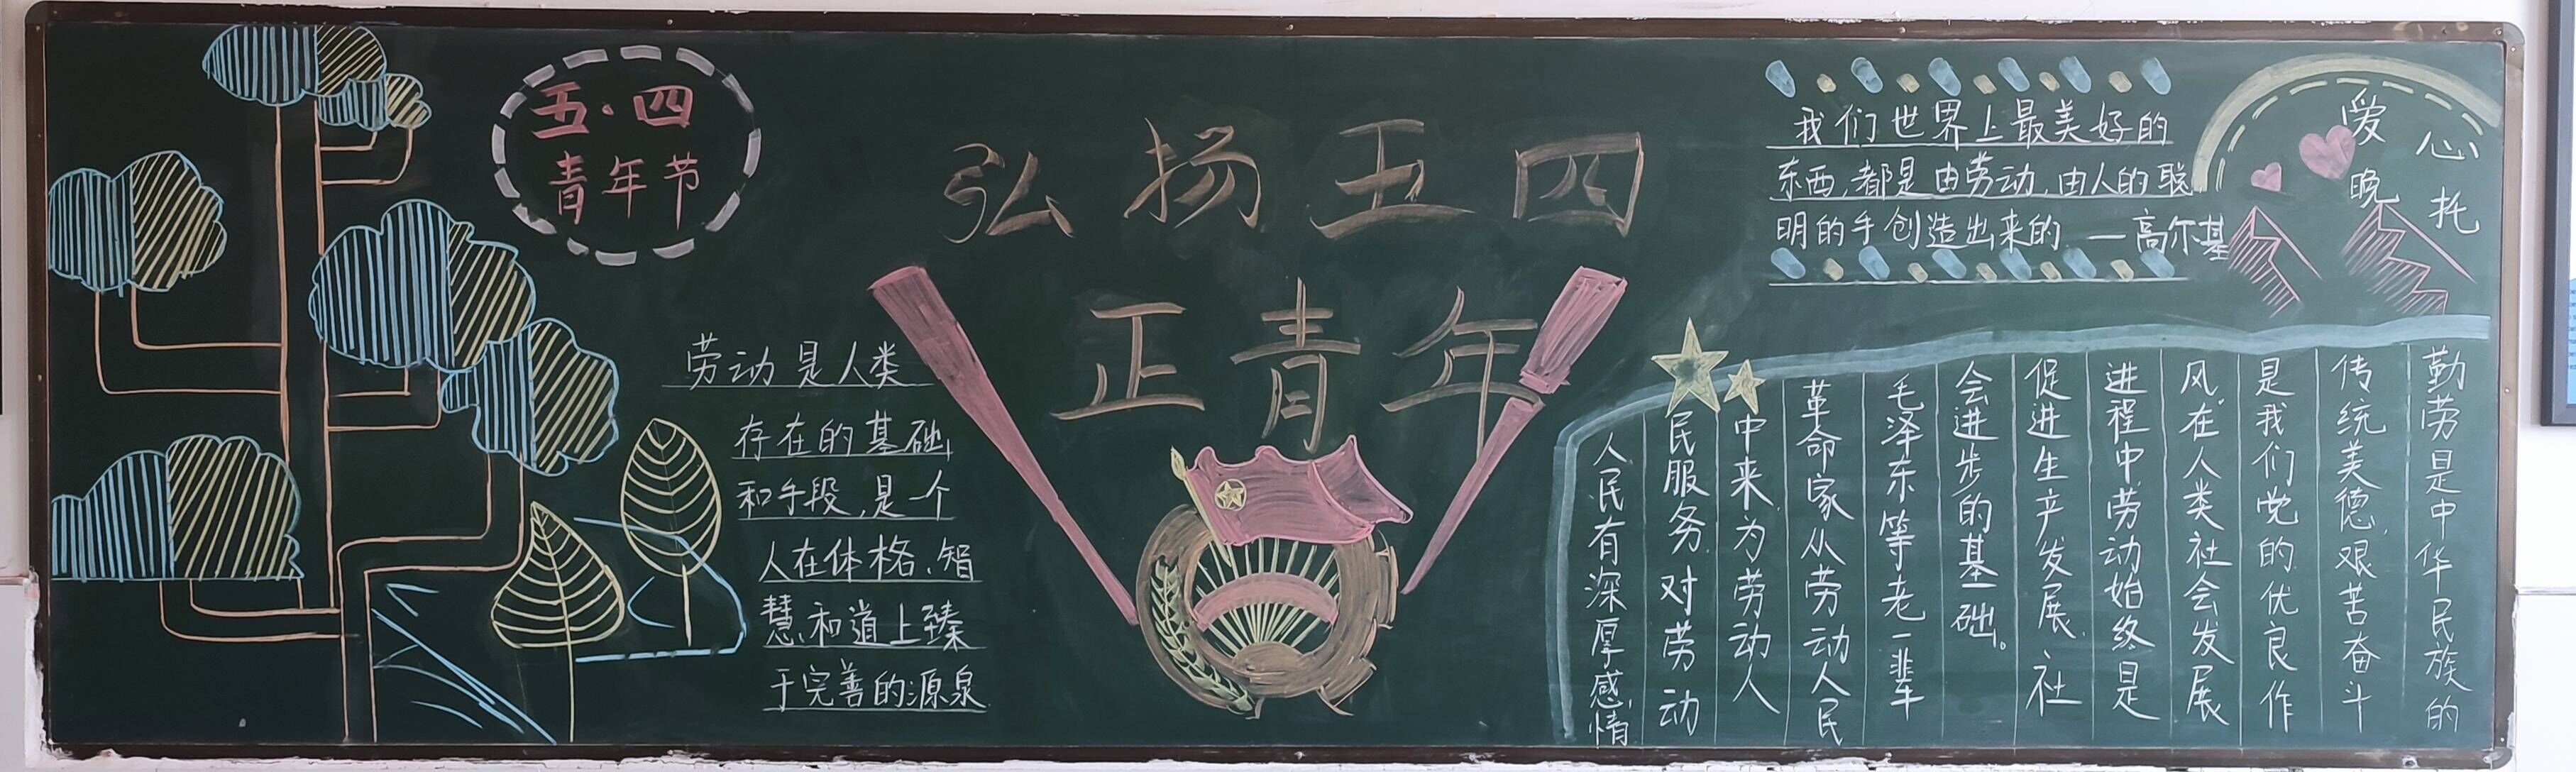 五·四
青年节
弘扬五四
正青年
劳动是人类
存在的基础
和手段,是个
人在体格、智
慧、和道上臻
于完善的源泉
我们世界上最美好的
东西,都是由劳动,由人的聪
明的手创造出来的 —高尔基
爱心
晚托
勤劳是中华民族的
传统美德,艰苦奋斗
是我们党的优良作
风在人类社会发展
进程中劳动始终是
促进生产发展、社
会进步的基础。
毛泽东等老一辈
革命家从劳动人民
中来为劳动人
民服务、对劳动
人民有深厚感情